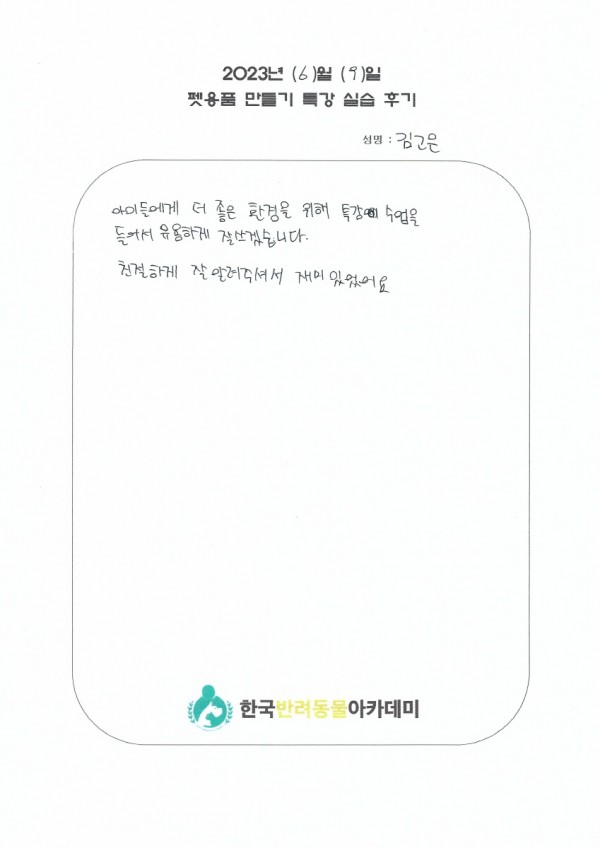 2023년 (6)월 (9)일
펫용품 만들기 특강 실습 후기
성명 : 김고은
아이들에게 더 좋은 환경을 위해 특강 수업을
들어서 유용하게 잘쓰겠습니다.
친절하게 잘 알려주셔서 재미있었어요
한국반려동물아카데미